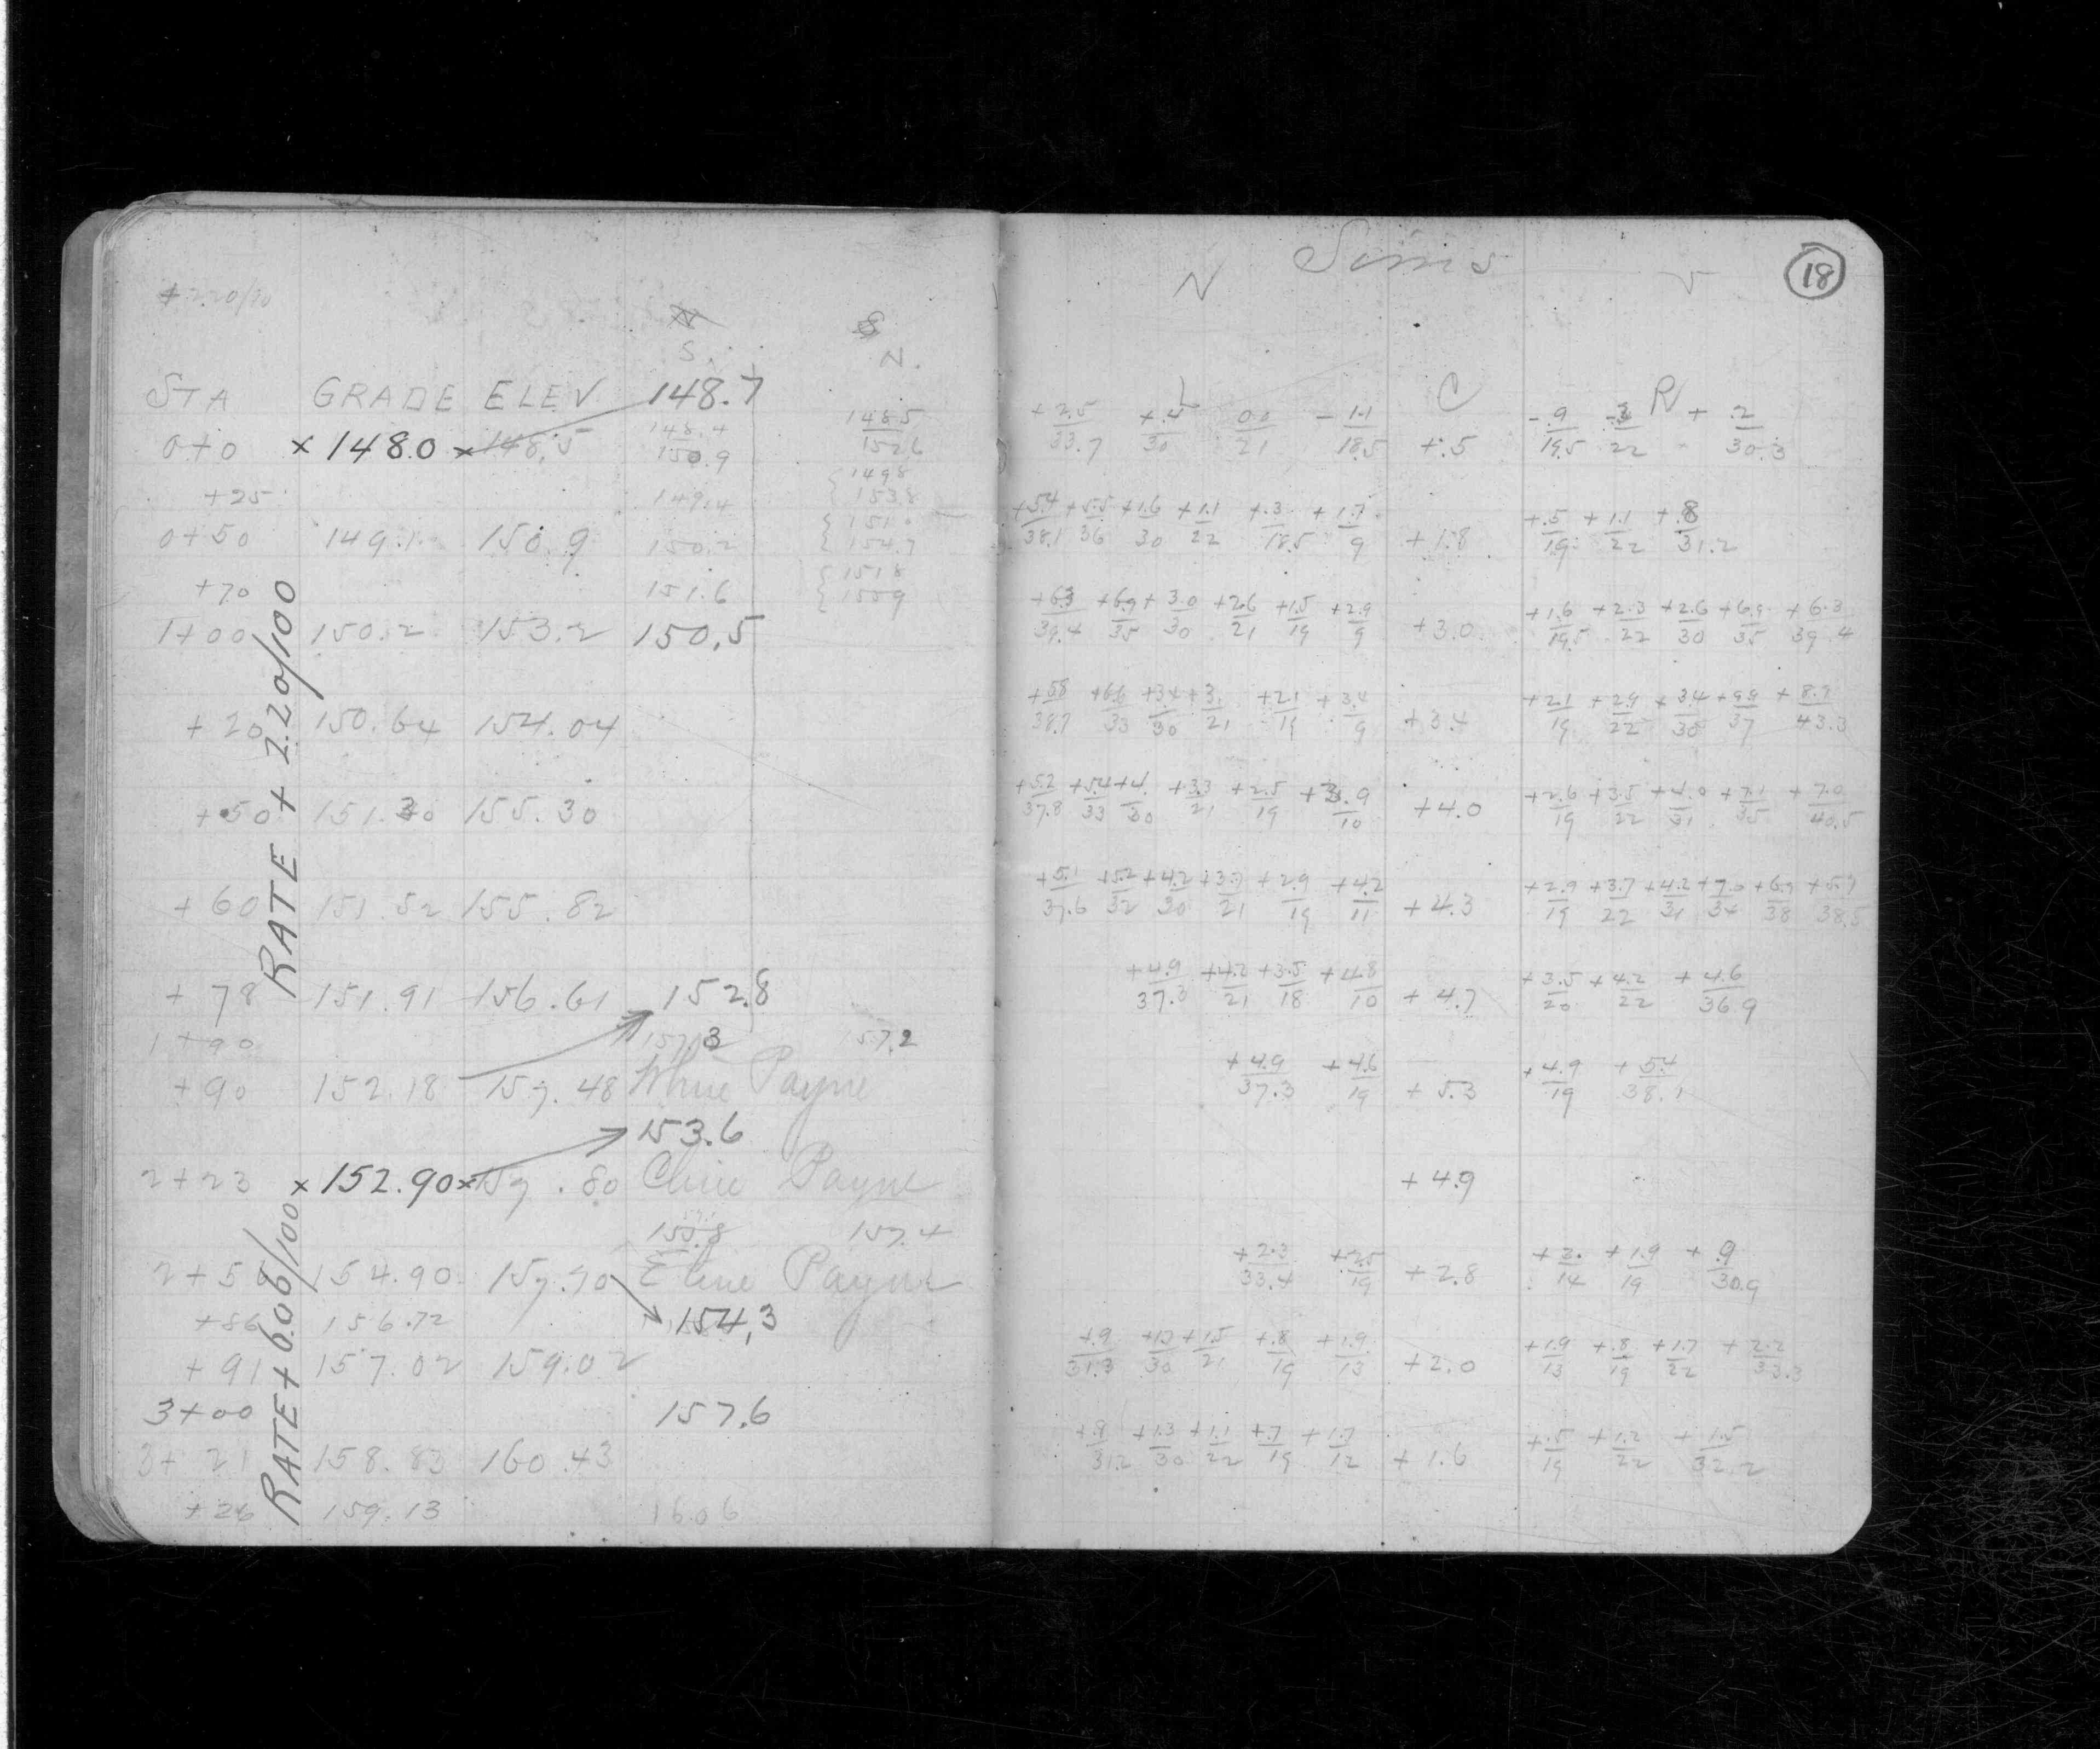 + 2.20/00
N S
S. N.
STA GRADE ELEV 148.7
148.5
0+0 × 148.0 × 148.5 148.4 152.6
150.9
+25 149.4 149.8
153.8
0+50 149.1 150.9 150.2 151.0
154.7
+70 151.6 151.8
155.9
1+00 150.2 153.2 150.5
+20 150.64 154.04
+50 151.30 155.30
+60 151.52 155.82
+78 151.91 156.61 152.8
1+90 157.3 157.2
+90 152.18 157.48 Payne
153.6
2+23 × 152.90 × 157.80 Cline Payne
155.8 157.4
2+56 154.90 157.70 Cline Payne
+86 156.72 154.3
+91 157.02 159.02
3+00 157.6
3+21 158.83 160.43
+26 159.13 160.6
RATE + 2.20/100
RATE + 6.06/100
Sims 18
N
L C R
+2.5/33.7 +.4/30 00/21 -1.1/18.5 +.5 -.9/19.5 -.3/22 +.2/30.3
+5.4/38.1 +5.5/36 +1.6/30 +1.1/22 +.3/18.5 +1.7/9 +1.8 +.5/19 +1.1/22 +.8/31.2
+6.3/39.4 +6.9/35 +3.0/30 +2.6/21 +1.5/19 +2.9/9 +3.0 +1.6/19.5 +2.3/22 +2.6/30 +6.9/35 +6.3/39.4
+5.8/38.7 +6.6/33 +3.4/30 +3./21 +2.1/19 +3.4/9 +3.4 +2.1/19 +2.9/22 +3.4/30 +9.9/37 +8.9/43.3
+5.2/37.8 +5.4/33 +4./30 +3.3/21 +2.5/19 +3.9/10 +4.0 +2.6/19 +3.5/22 +4.0/31 +7.1/35 +7.0/40.5
+5.1/37.6 +5.2/32 +4.2/30 +3.7/21 +2.9/19 +4.2/11 +4.3 +2.9/19 +3.7/22 +4.2/31 +7.0/34 +6.9/38 +5.7/38.5
+4.9/37.3 +4.2/21 +3.5/18 +4.8/10 +4.7 +3.5/20 +4.2/22 +4.6/36.9
+4.9/37.3 +4.6/19 +5.3 +4.9/19 +5.4/38.1
+4.9
+2.3/33.4 +2.5/19 +2.8 +2./14 +1.9/19 +.9/30.9
+.9/31.3 +1.2/30 +1.5/21 +.8/19 +1.9/13 +2.0 +1.9/13 +.8/19 +1.7/22 +2.2/33.3
+.8/31.2 +1.3/30 +1.1/22 +.7/19 +1.7/12 +1.6 +.5/19 +1.2/22 +1.5/32.2